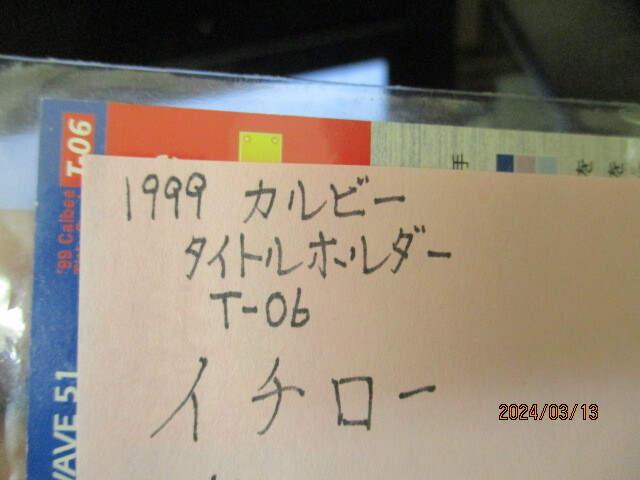 T-06
'99 Calbee
WAVE 51
手
を
を
1999 カルビー
タイトルホルダー
T-06
イチロー
2024/03/13